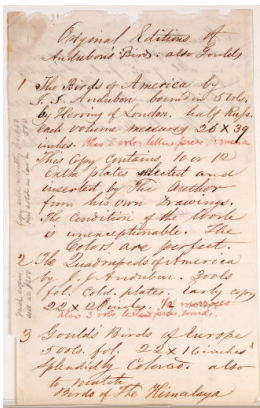 Original Editions of
Audubon's Birds. also Goulds
1 The Birds of America by
J. J. Audubon bound in 5 Vols.
by Hering of London. half
Each volume measures 26 x 39
inches. Also 5 vols. letter press,
This Copy Contains, 10 or 12
Extra plates selected and
inserted by The Author
from his own Drawings.
The Condition of the Work
is unexceptionable. The
Colors are perfect.
2 The Quadrupeds of America
by J. J. Audubon. 2 vols
fol. Cold. plates. Early copy
22 x inches. 1/2 morocco
also 3 vols letter press, bound.
3 Gould's Birds of Europe
5 vols. fol. 22 x 16 inches
Splendidly Colored. also
to match
Birds of The Himalaya